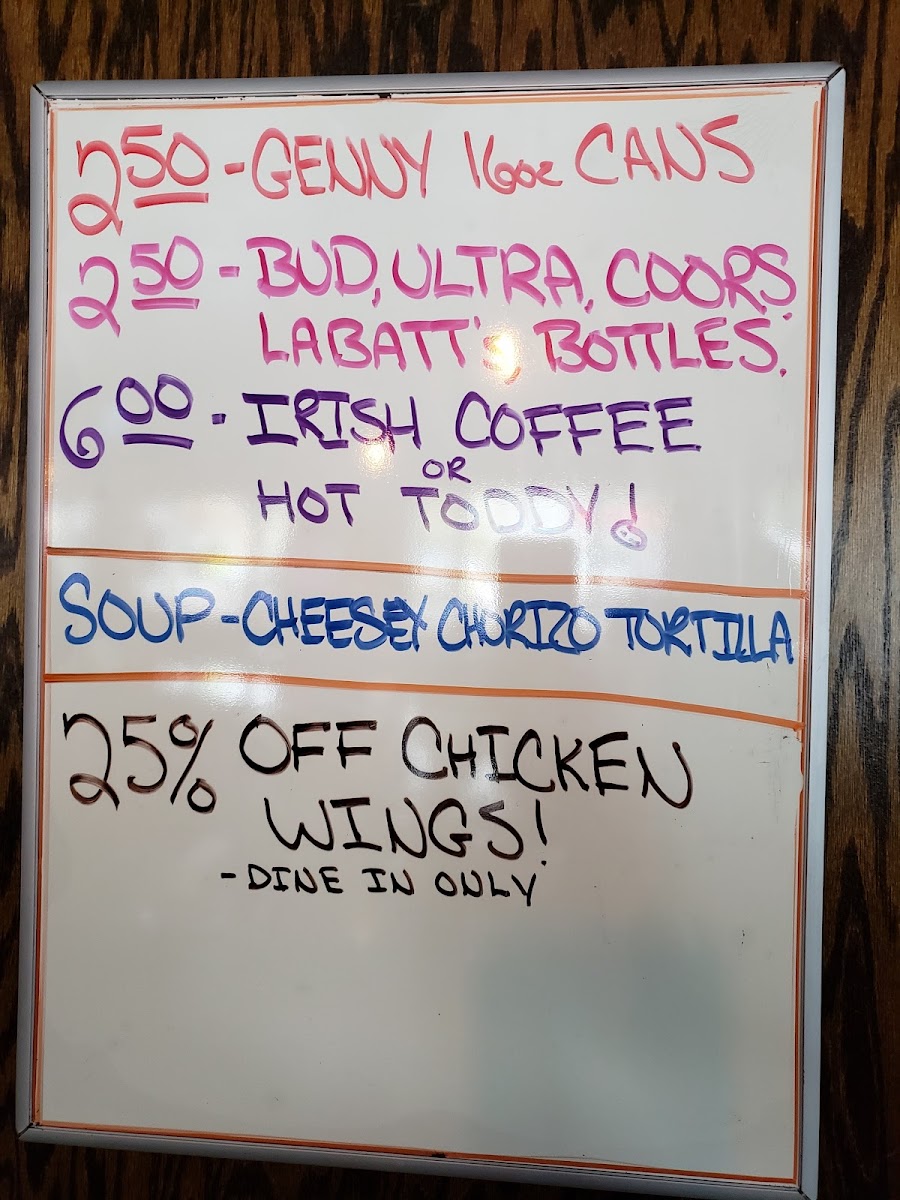 2.50 - GENNY 16oz CANS
2.50 - BUD, ULTRA, COORS
LABATT'S, BOTTLES!
6.00 - IRISH COFFEE
OR
HOT TODDY!
SOUP - CHEESEY CHORIZO TORTILLA
25% OFF CHICKEN
WINGS!
- DINE IN ONLY